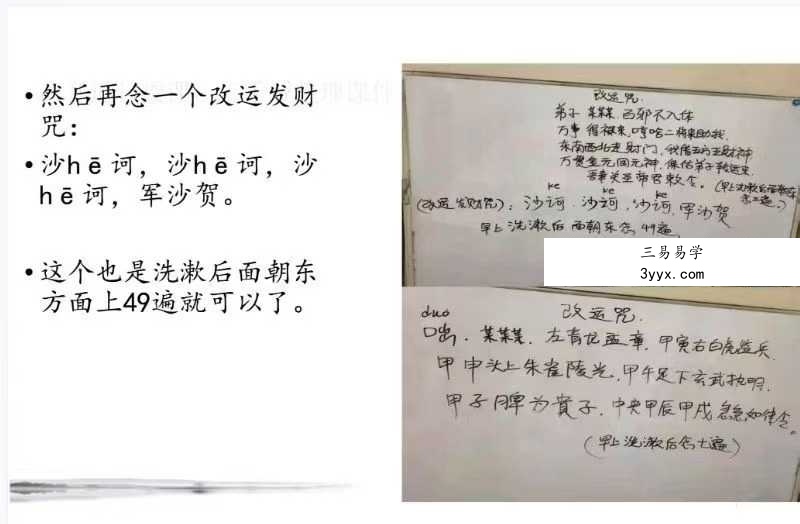 • 然后再念一个改运发财
咒：
• 沙hē诃，沙hē诃，沙
hē诃，军沙贺。
• 这个也是洗漱后面朝东
方面上49遍就可以了。
改运咒.
弟子 某某某. 百邪不入体
万事 得福来. 哼哈二将来助我.
东南西北走财门. 我请五方五财神
万贯金元回元神. 保佑弟子转运来.
吾奉关圣帝君敕令。(早上洗漱后面朝东
念七遍。)
ke ke ke
(改运发财咒)：沙诃. 沙诃. 沙诃. 军沙贺
早上 洗漱后 面朝东念 49遍
三易易学
3yyx.com
duo 改运咒.
咄. 某某某. 左青龙孟章. 甲寅右白虎监兵.
甲申头上朱雀陵光. 甲午足下玄武执明.
甲子月脾为貴子. 中央甲辰甲戌 急急如律令。
(早上洗漱后念七遍)